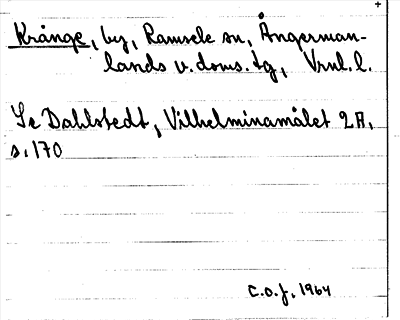 Krånge, by, Ramsele sn, Ångerman-
lands v. doms. tg, Vrnl. l.
Se Dahlstedt, Vilhelminamålet 2A,
s. 170
C.O.J. 1964